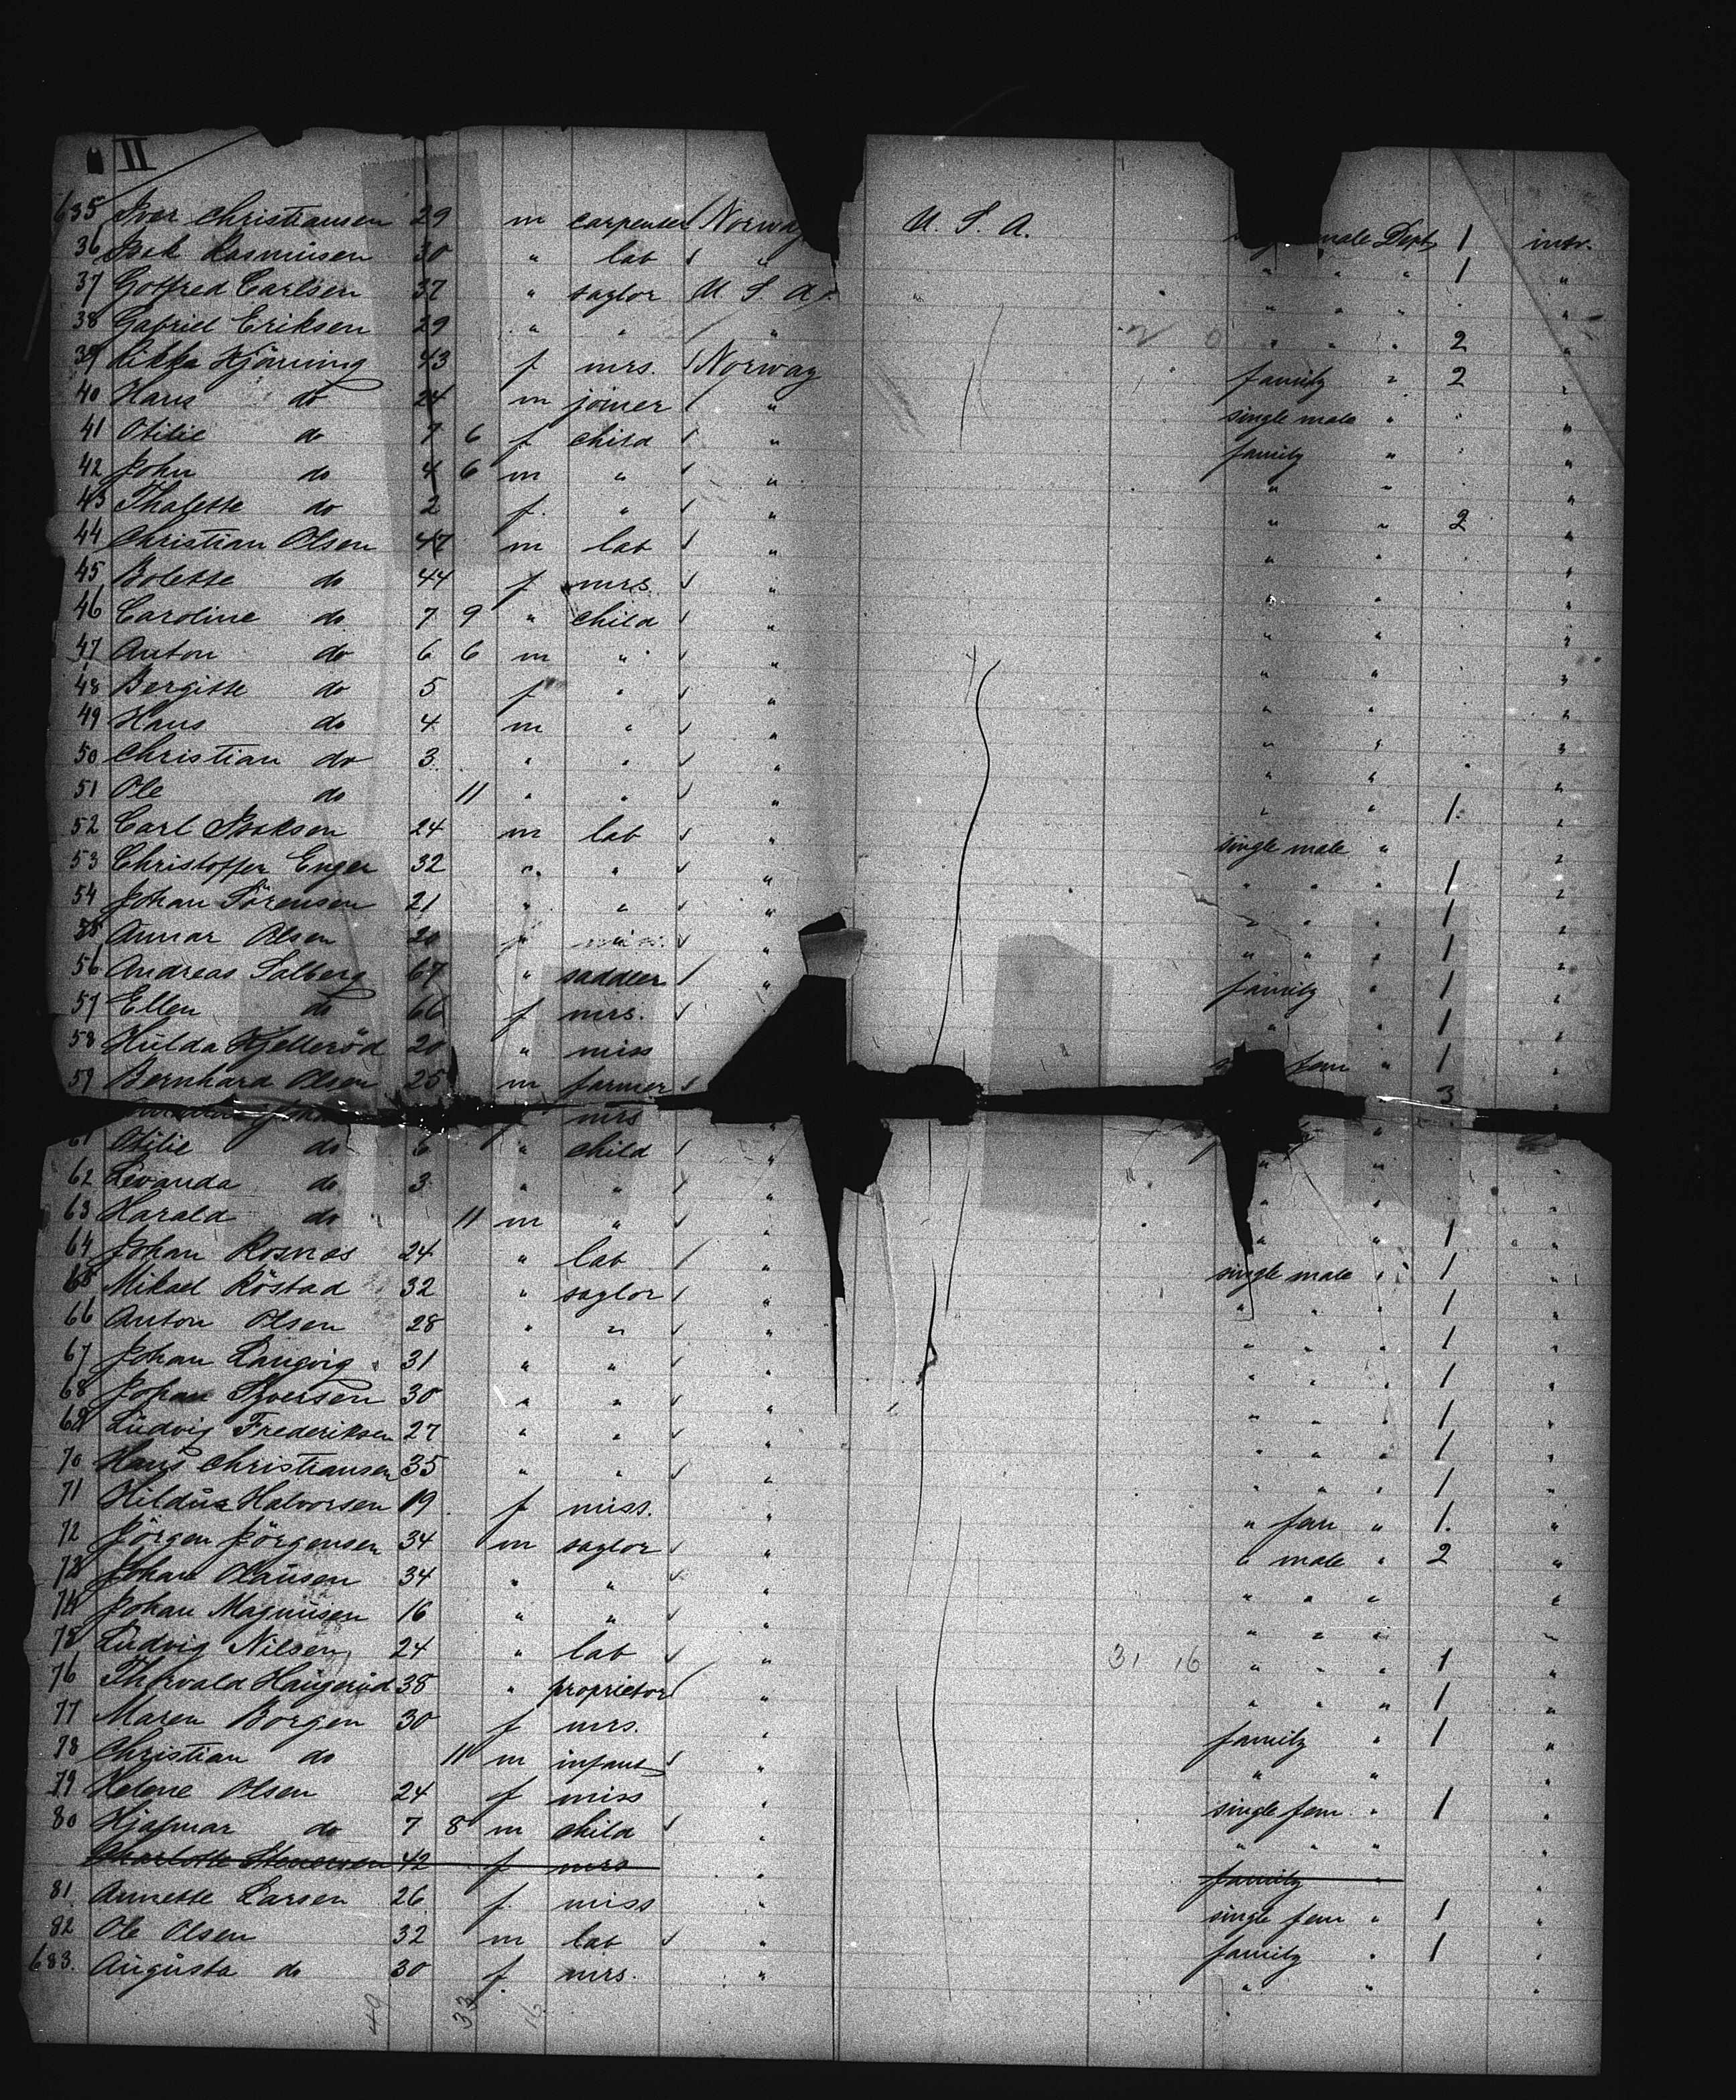 II
635 Iver Christiansen 29 m carpenter Norway U. S. A. male Dept 1 intr.
36 Isak Rasmusen 30 " lab " " " " 1 "
37 Gottfred Carlsen 37 " saylor U. S. A. " " " " "
38 Gabriel Eriksen 29 " " " " " " 2 "
39 Rikka Hjörning 43 f mrs. Norway family " 2 "
40 Hans do 24 m joiner " single male " "
41 Otilie do 7 6 f child " family " "
42 John do 4 6 m " " " " "
43 Thalette do 2 f. " " " " 2 "
44 Christian Olsen 47 m lab " " " "
45 Bolette do 44 f mrs. " " " "
46 Caroline do 7 9 " child " " " "
47 Anton do 6 6 m " " " " "
48 Bergitte do 5 f " " " " "
49 Hans do 4 m " " " " "
50 Christian do 3. " " " " " "
51 Ole do 11 " " " " " 1. "
52 Carl Isaksen 24 m lab " single male " "
53 Christoffer Enger 32 " " " " " " 1 "
54 Johan Sörensen 21 " " " " " " 1 "
55 Annar Olsen 20 " " " " 1 "
56 Andreas Solberg 67 " saddler " family " 1 "
57 Ellen do 66 f mrs. " " " 1 "
58 Hulda Kjelleröd 20 " miss fem " 1 "
59 Bernhard Olsen 25 m farmer 3 "
mrs " "
61 Otilie do 6 " child " " "
62 Levanda do 3 " " " " " "
63 Harald do 11 m " " " " 1 "
64 Johan Rosnes 24 " lab " single male " 1 "
65 Mikael Röstad 32 " saylor " " " " 1 "
66 Anton Olsen 28 " " " " " " 1 "
67 Johan Langvig 31 " " " " " " 1 "
68 Johan Syversen 30 " " " " " " 1 "
69 Ludvig Frederiksen 27 " " " " " " 1 "
70 Hans Christiansen 35 " " " " " " 1 "
71 Hildur Halvorsen 19 f miss. " " fem " 1. "
72 Jörgen Jörgensen 34 m saylor " " male " 2 "
73 Johan Olausen 34 " " " " " " "
74 Johan Magnusen 16 " " " " " " "
75 Ludvig Nilsen 24 " lab " 31 16 " " " 1 "
76 Thorvald Haugeröd 38 " proprietor " " " " 1 "
77 Maren Borgen 30 f mrs. " family " 1 "
78 Christian do 11 m infant " " " "
79 Helene Olsen 24 f miss " single fem " 1 "
80 Hjalmar do 7 8 m child " " " " "
Charlotte Stenersen 42 f mrs " family " "
81. Annette Larsen 26 f. miss " single fem " 1 "
82 Ole Olsen 32 m lab " family " 1 "
683. Augusta do 30 f. mrs. " " " "
49 33 16